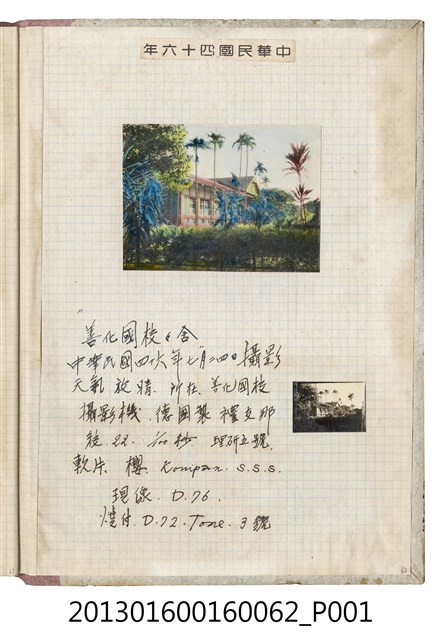 中華民國四十六年
善化國校
中華民國四六年七月二四日攝影
天氣 放晴 所在 善化國校
攝影機 德國製
軟片 櫻 Konipan S.S.S.
現像 D.76
燒付 D.72. Tone. 3號
201301600160062_P001